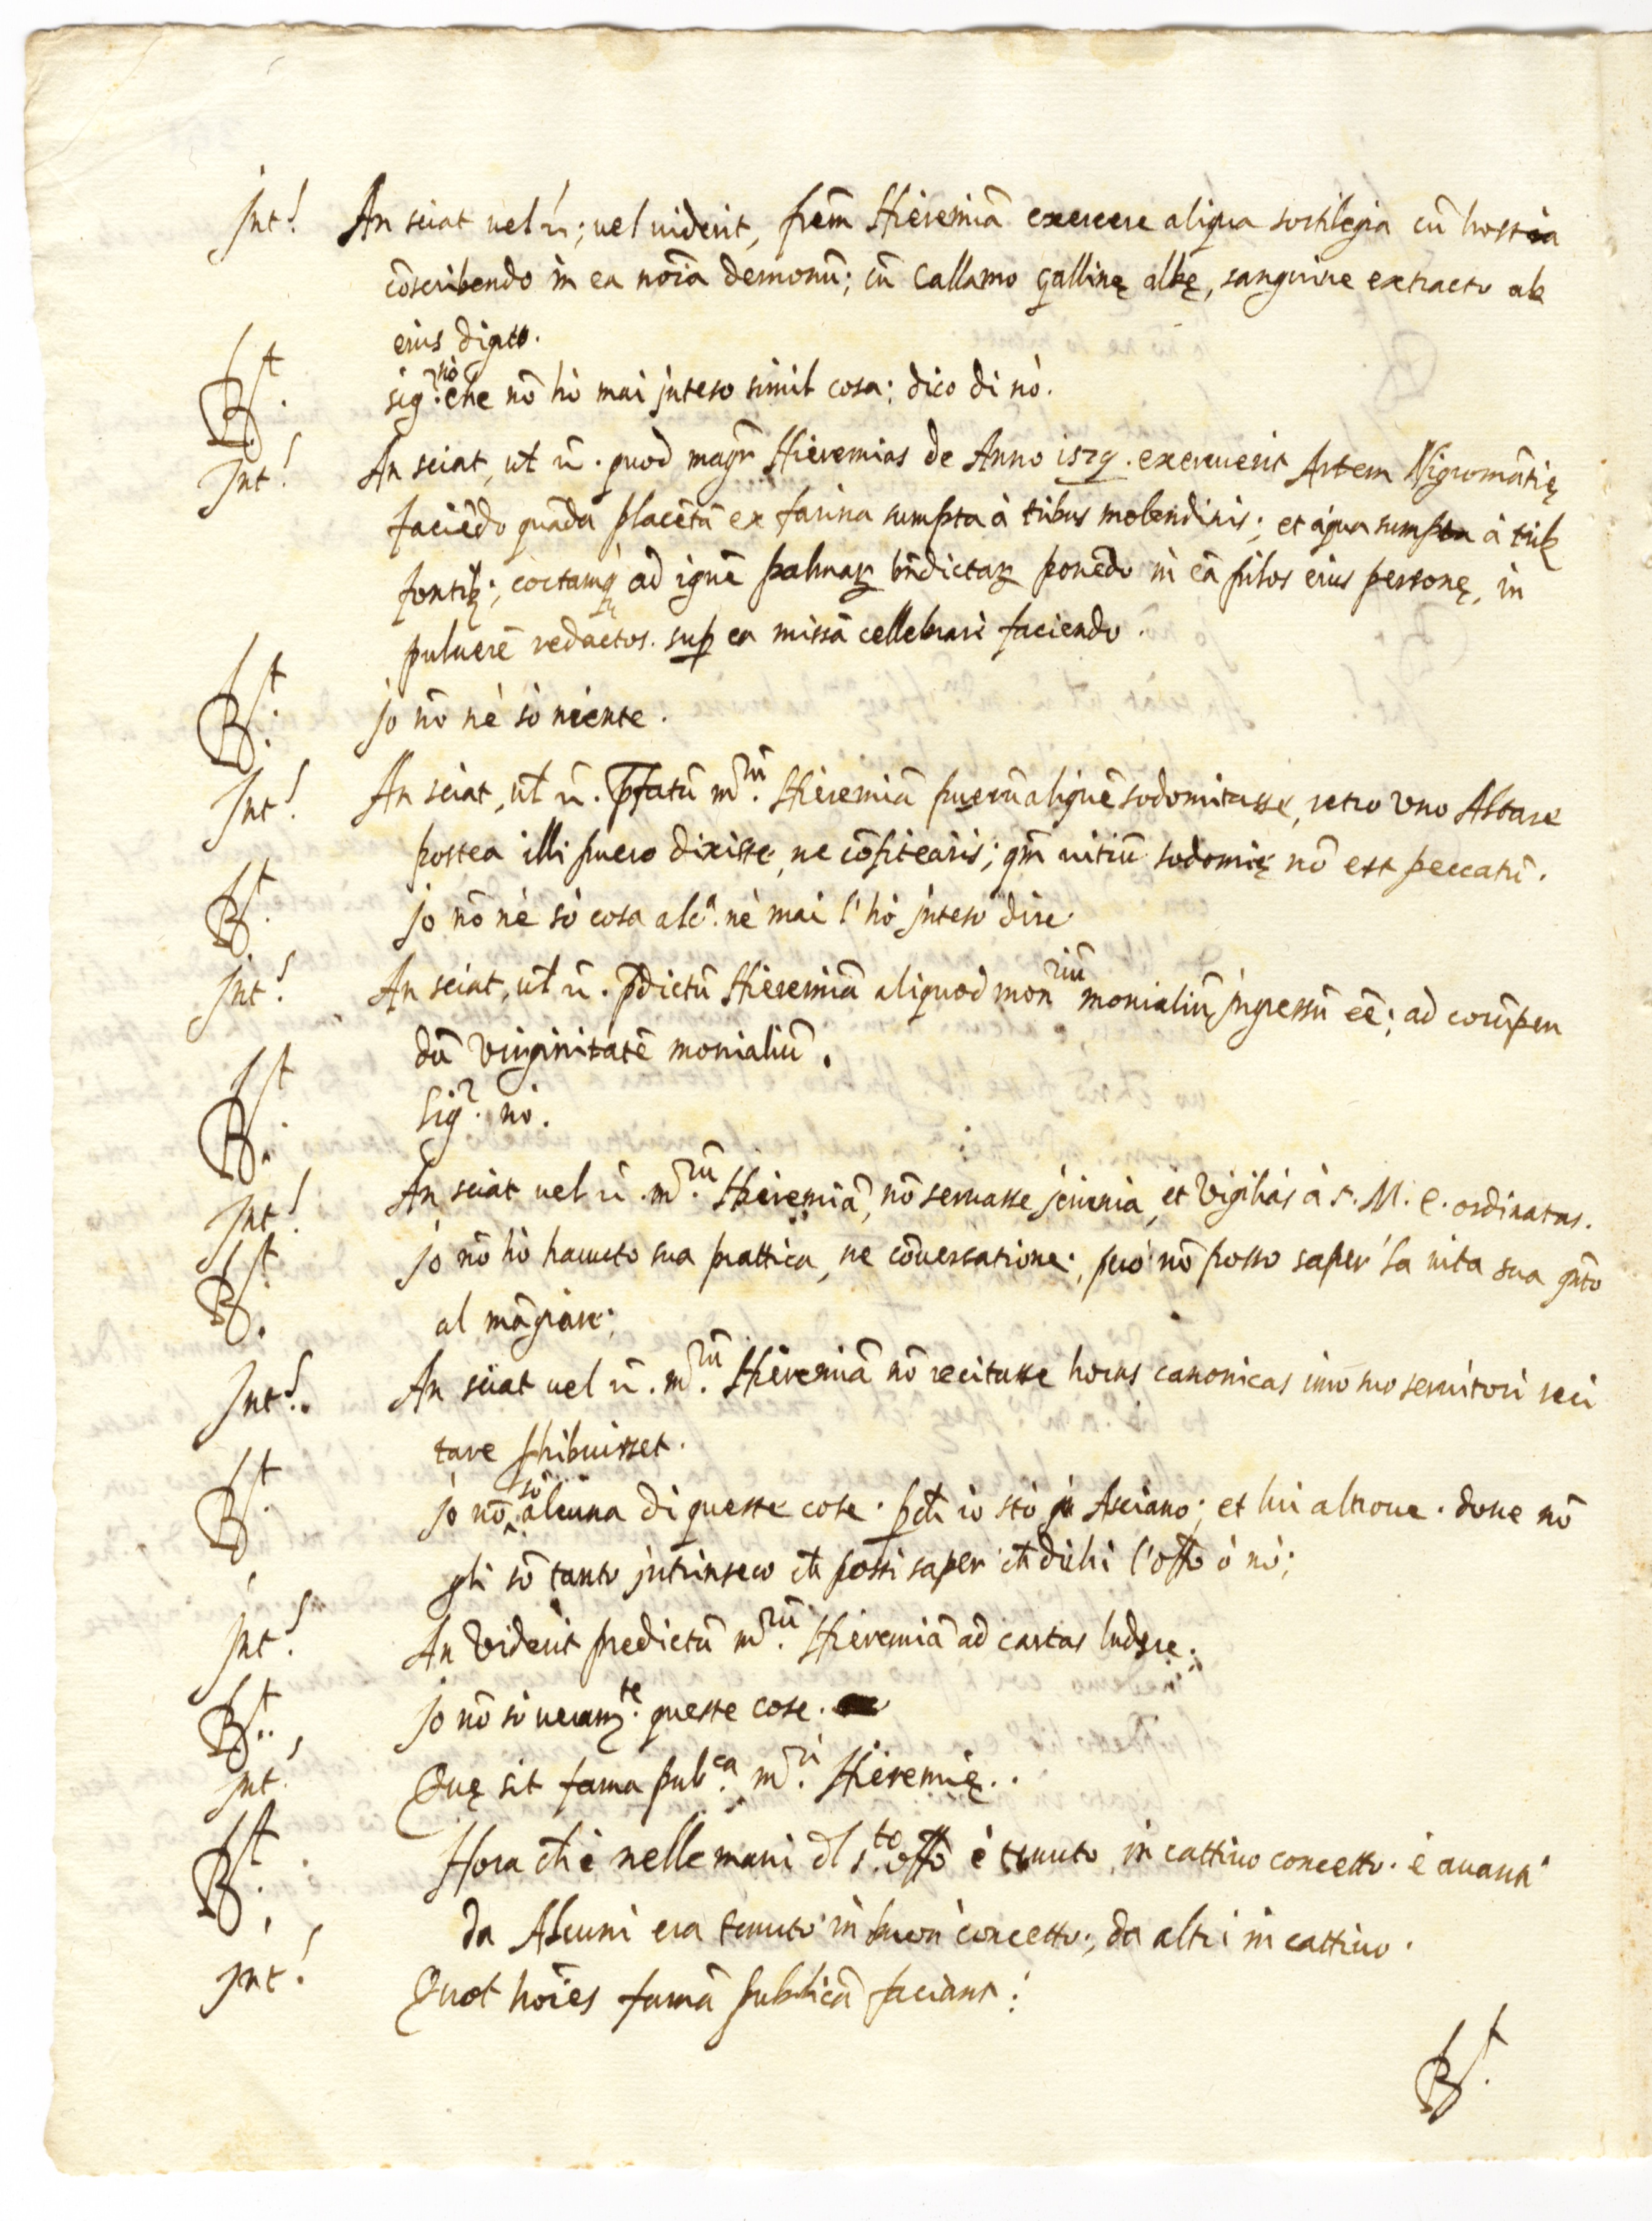 Int.s An sciat vel n̄; vel viderit, frēm Hieremiā exercere aliqua sortilegia cū hostia
cōscribendo in ea noīa demonū; cū Callamo gallinę albę, sanguine extracto ab
eius digito.
R.t sig.r nò che nō hò mai inteso simil cosa; dico di nò.
Int.s An sciat, ul̄ n̄. quod magr̄ Hieremias de Anno 1579. exercuerit Artem Nigromātię
faciēdo quādā placētā ex farina sumpta à tribus molendinis; et aqua sumpta à trib
fontib; coctamq ad ignē palmaꝝ bn̄dictaꝝ ponēdo in eā pilos eius personę, in
puluerē redactos. sup ea missā cellebrari faciendo.
R.t jo nō nè sò niente.
Int.s An sciat, ul̄ n̄. p̄fatū m.rū Hieremiā puerū aliquē sodomitasse, retro vno Altare
postea illi puero dixisse, ne cōfitearis; qm̄ vitiū sodomię nō est peccatū.
R.t jo nō nè sò cosa alc.a nè mai l'hò inteso dire
Int.s An sciat, ul̄ n̄. p̄dictū Hieremiā aliquod mon.riū monialiū, ingressū eē; ad corūpen
dā virginitatē monialiū.
R.t Sig.r nò.
Int.s An sciat vel n̄. m.rū Hieremiā, nō seruasse jeiunia, et Vigilias à s. M. e. ordinatas.
R.t jo nō hò hauuto sua prattica, ne cōuersatione; però nō posso saper' la vita sua qn̄to
al māgiare;
Int.s An sciat vel n̄. m.rū Hieremiā nō recitasse horas canonicas imō suo seruitori reci
tare p̄hibuisset.
R.t jo nō sò alcuna di queste cose. p̄ch io stò in Asciano; et lui altroue. doue nō
gli sō tanto intrinseco ch possi saper' ch dichi l'offo ò nò;
Int.s An viderit predictū m.rū Hieremiā ad cartas ludere.
R.t jo nō sò veram.te queste cose.
Int.s Quę sit fama pub.ca m.ri Hieremię.
R.t Hora ch è nelle mani dl s.to offo è tenuto in cattiuo concetto. e auanti
da Alcuni era tenuto in buon concetto; da altri in cattiuo.
Int.s Quot hoīes famā publicā faciant:
R.t